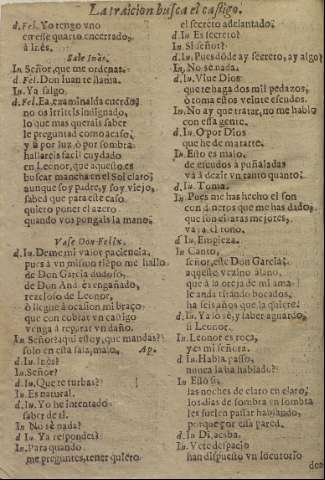 La traicion busca el castigo.
d. Fel. Yo tengo vno
en esse quarto encerrado,
à Inès.
Sale Inès.
In. Señor, que me ordenas?
d. Fel. Don Iuan te llama.
In. Ya salgo.
d. Fel. Ea, examinalda cuerdo,
no os irriteis indignado,
lo que mas querais saber
le preguntad como acaso,
y à por luz, ò por sombra
hallareis facil cuydado
en Leonor, que aquesto es
buscar mancha en el Sol claro;
aunque soy padre, y soy viejo,
sabed que para este caso
quiero poner el azero
quando vos pongais la mano.
Vase Don Felix.
d. Iu. Deme mi valor paciencia,
pues à vn mismo tiempo me hallo
de Don Garcia dudoso,
de Don Andrès engañado,
rezeloso de Leonor,
ò llegue à ocasion mi braço
que con cobrar vn castigo
venga à reparar vn daño.
In. Señor? aqui estoy, que mandas?
solo en esta sala, malo. Ap.
d. Iu. Inès?
In. Señor?
d. Iu. Que te turbas?
In. Es natural.
d. Iu. Yo he intentado
saber de ti.
In. No sè nada?
d. Iu. Ya respondes?
In. Para quando
me preguntes, tener quiero
el secreto adelantado.
d. Iu. Es secreto?
In. Si señor.
d. Iu. Puesdode ay secreto, ay algo?
In. No sè nada.
d. Iu. Viue Dios
que te haga dos mil pedazos,
ò toma esos veinte escudos.
In. No ay que tratar, no me hablo
con essa gente.
d. Iu. O por Dios
que he de matarte.
In. Esso es malo,
de escudos à puñaladas
và à dezir vn tanto quanto.
d. Iu. Toma.
In. Pues me has hecho el son
con dineros que me has dado,
que son çitaras mejores,
và à el tono.
d. Iu. Empieza.
In. Canto,
señor, este Don Garcia,
aquesso vezino al uno,
que à la oreja de mi ama
le anda tirando bocados,
ha seis años que la quiere.
d. Iu. Ya lo sè, y saber aguardo,
si Leonor.
In. Leonor es roca,
y es mi señora.
d. Iu. Habla passo,
nunca la ha hablado?
In. Esso si,
las noches de claro en claro,
los dias de sombra en sombra
les suelen passar hablando,
porque por esta pared.
d. Iu. Di, acaba.
In. Vete despacio
han dispuesto vn locutorio